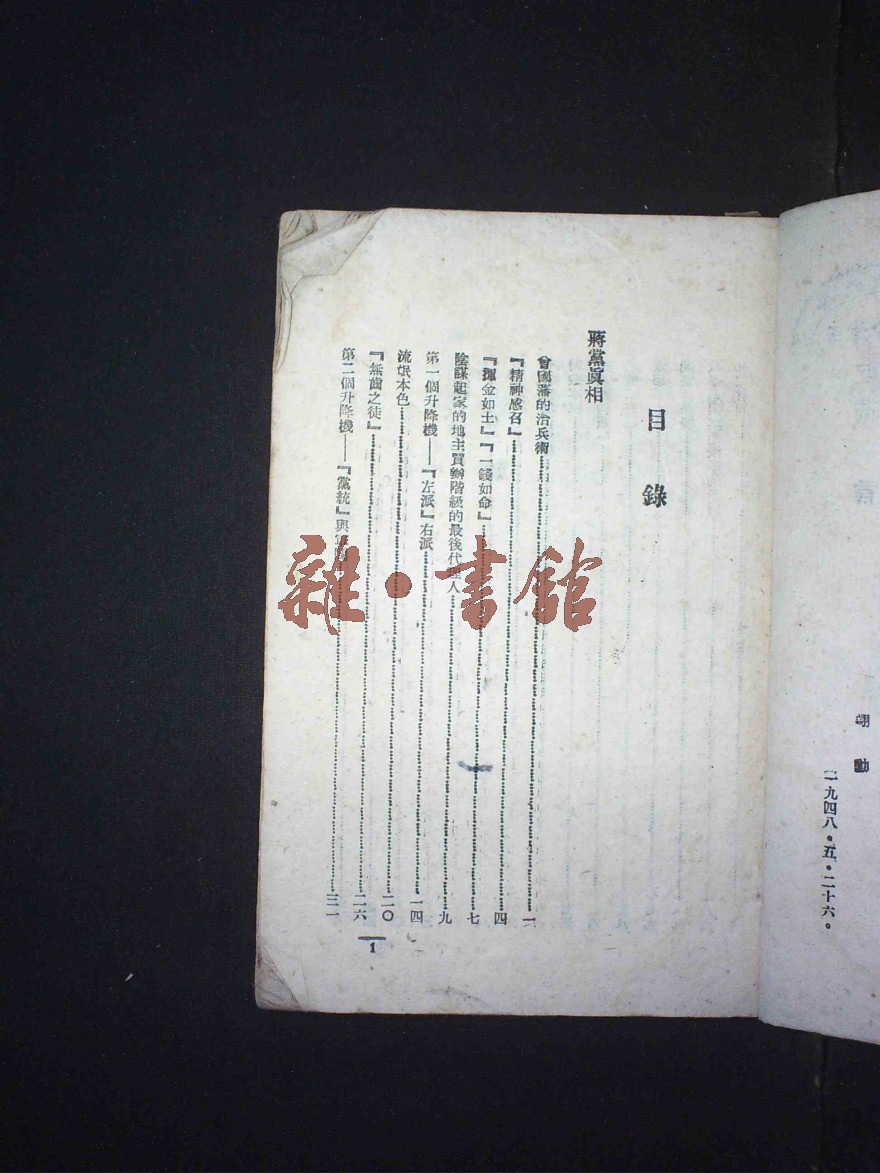 翊勳
一九四八·五·二十六。
目錄
蔣黨眞相
曾國藩的治兵術……一
『精神感召』……四
『揮金如土』『一錢如命』……七
陰謀起家的地主買辦階級的最後代理人……九
第一個升降機——『左派』右派……一四
流氓本色……二〇
『無齒之徒』……二六
第二個升降機——『黨統』與……三一
1
雜·書館